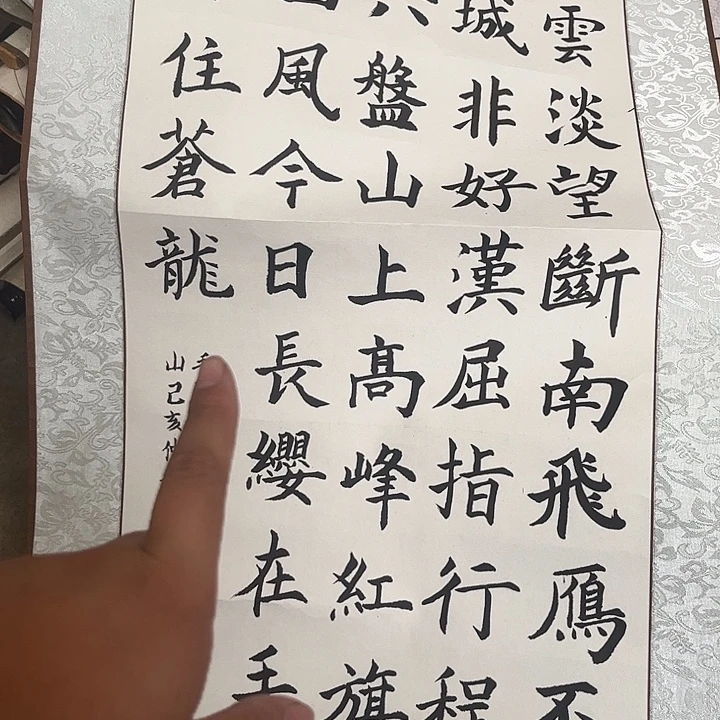 雲淡望斷南飛鴈不
城非好漢屈指行程
盤山上高峰紅旗
風今日長纓在手
住蒼龍
山己亥仲